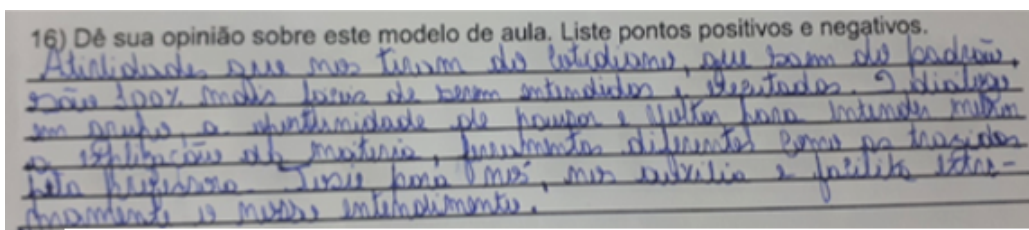 16) Dê sua opinião sobre este modelo de aula. Liste pontos positivos e negativos.
Atividades que nos tiram do cotidiano, que saem do padrão,
são 100% mais fáceis de serem entendidos e executados. O diálogo
em grupo, a oportunidade de pausar e voltar para intender melhor
a explicação da matéria, ferramentas diferentes como as trazidas
pela professora para nós, nos auxilia e facilita extre-
mamente o nosso entendimento.